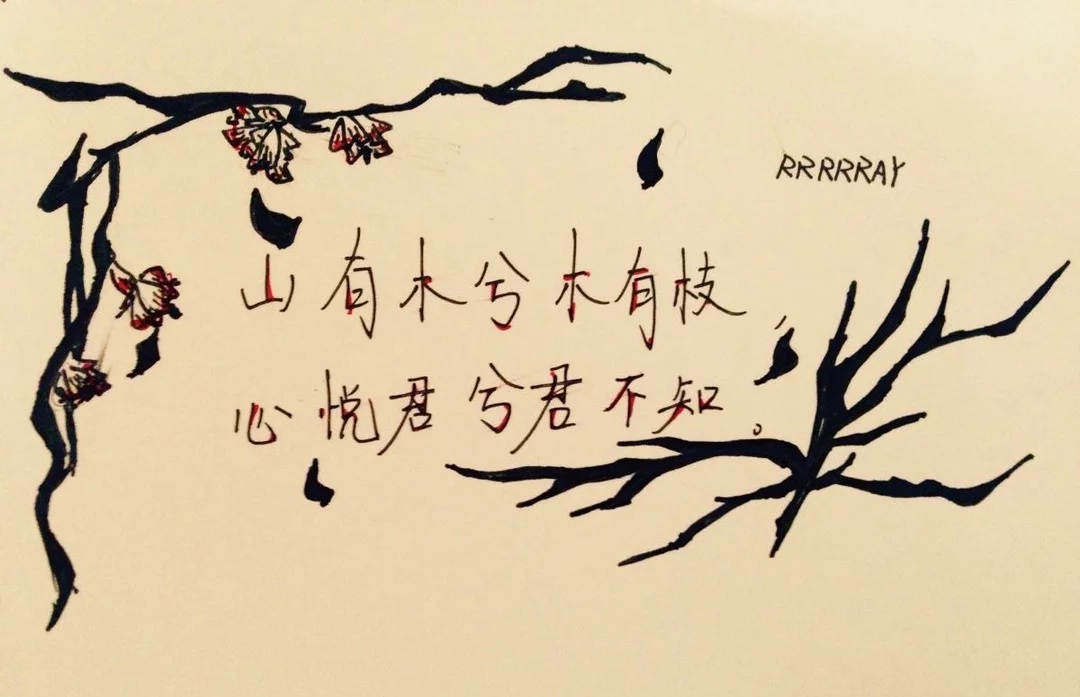 RRRRRAY
山有木兮木有枝
心悦君兮君不知。